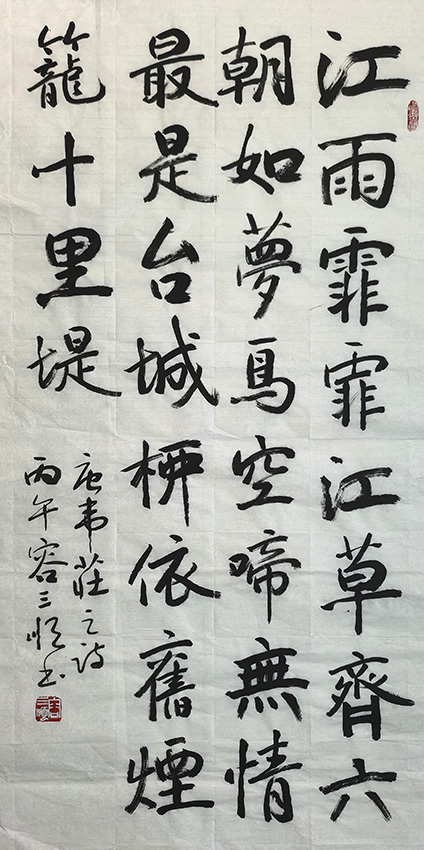 江雨霏霏江草齊六
朝如夢鳥空啼無情
最是台城柳依舊煙
籠十里堤
唐韦莊之诗
丙午容三顺书